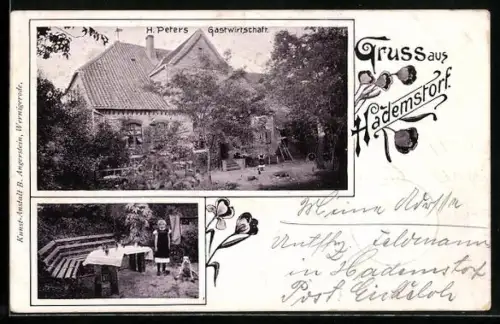 H. Peters Gastwirtschaft.
Gruss aus
Hademstorf.
Kunst-Anstalt R. Angerstein, Wernigerode.
Meine Adresse
Feldmann
in Hademstorf
Post Eickeloh